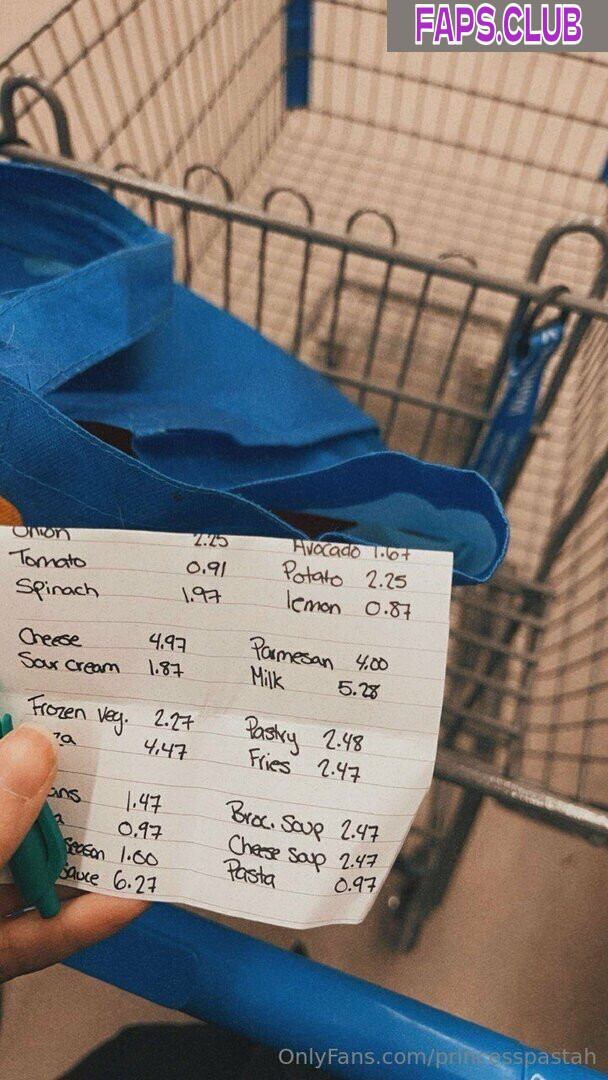 FAPS.CLUB
Onion 2.25 Avocado 1.67
Tomato 0.91 Potato 2.25
Spinach 1.97 lemon 0.87
Cheese 4.97 Parmesan 4.00
Sour cream 1.87 Milk 5.28
Frozen veg. 2.27 Pastry 2.48
za 4.47 Fries 2.47
ans 1.47 Broc. Soup 2.47
a 0.97 Cheese soup 2.47
Season 1.60 Pasta 0.97
Sauce 6.27
OnlyFans.com/princesspastah